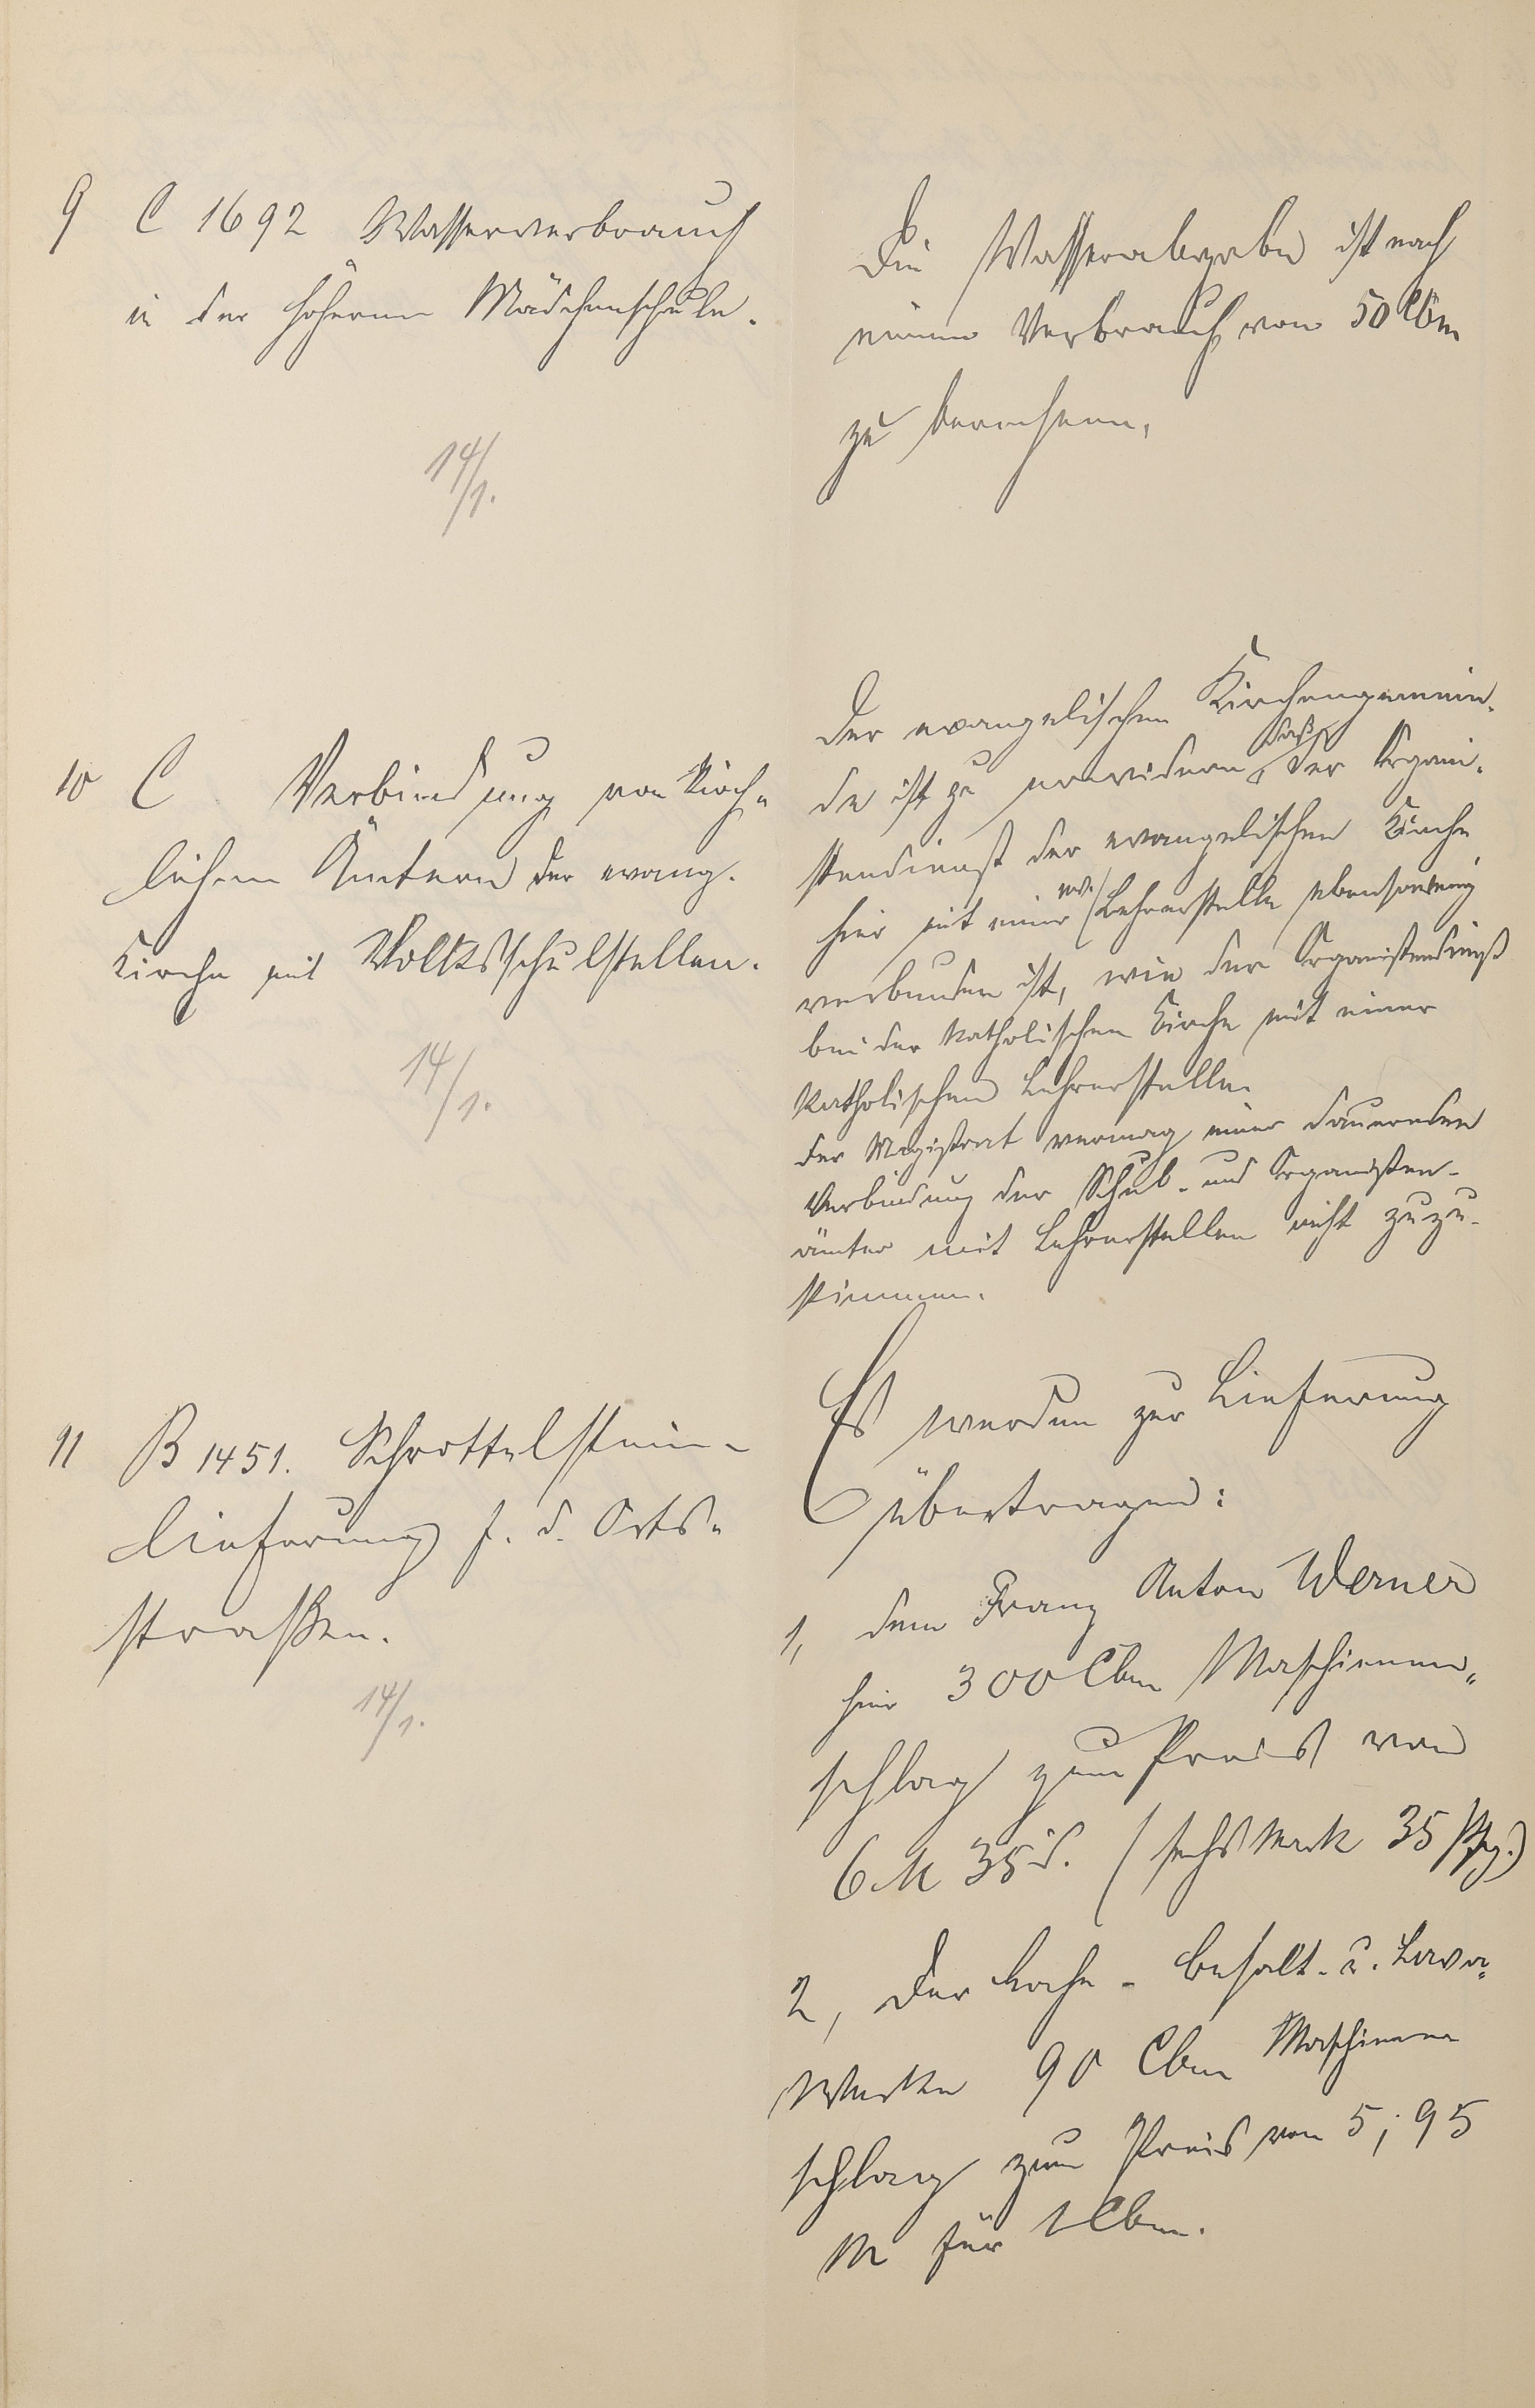 9 C 1692 Wasserverbrauch
in der höheren Mädchenschule.
14/1.
Die Wasserabgabe ist nach
einem Verbrauch von 50 Cbm
zu berechnen.
10 C Verbindung von kirch-
lichen Ämtern der evang.
Kirche mit Volksschulstellen.
14/1.
Der evangelischen Kirchengemein-
de ist zu erwidern, daß der Organi-
stendienst der evangelischen Kirche
hier mit einer ev. Lehrerstelle ebensowenig
verbunden ist, wie der Organistendienst
bei der katholischen Kirche mit einer
katholischen Lehrerstelle.
Der Magistrat vermag einer dauernden
Verbindung der Schul- und Organisten-
ämter mit Lehrerstellen nicht zuzu-
stimmen.
11 B 1451. Schrottelstein-
lieferung f. d. Orts-
straßen.
14/1.
Es werden zur Lieferung
übertragen:
1, dem Franz Anton Werner
hier 300 Cbm Maschinen-
schlag zum Preis von
6 M 35 d. (sechs Mark 35 Pfg.)
2, Der Basalt- u. Lava-
Werke 90 Cbm Maschinen
schlag zum Preis von 5,95
M für 1 Cbm.